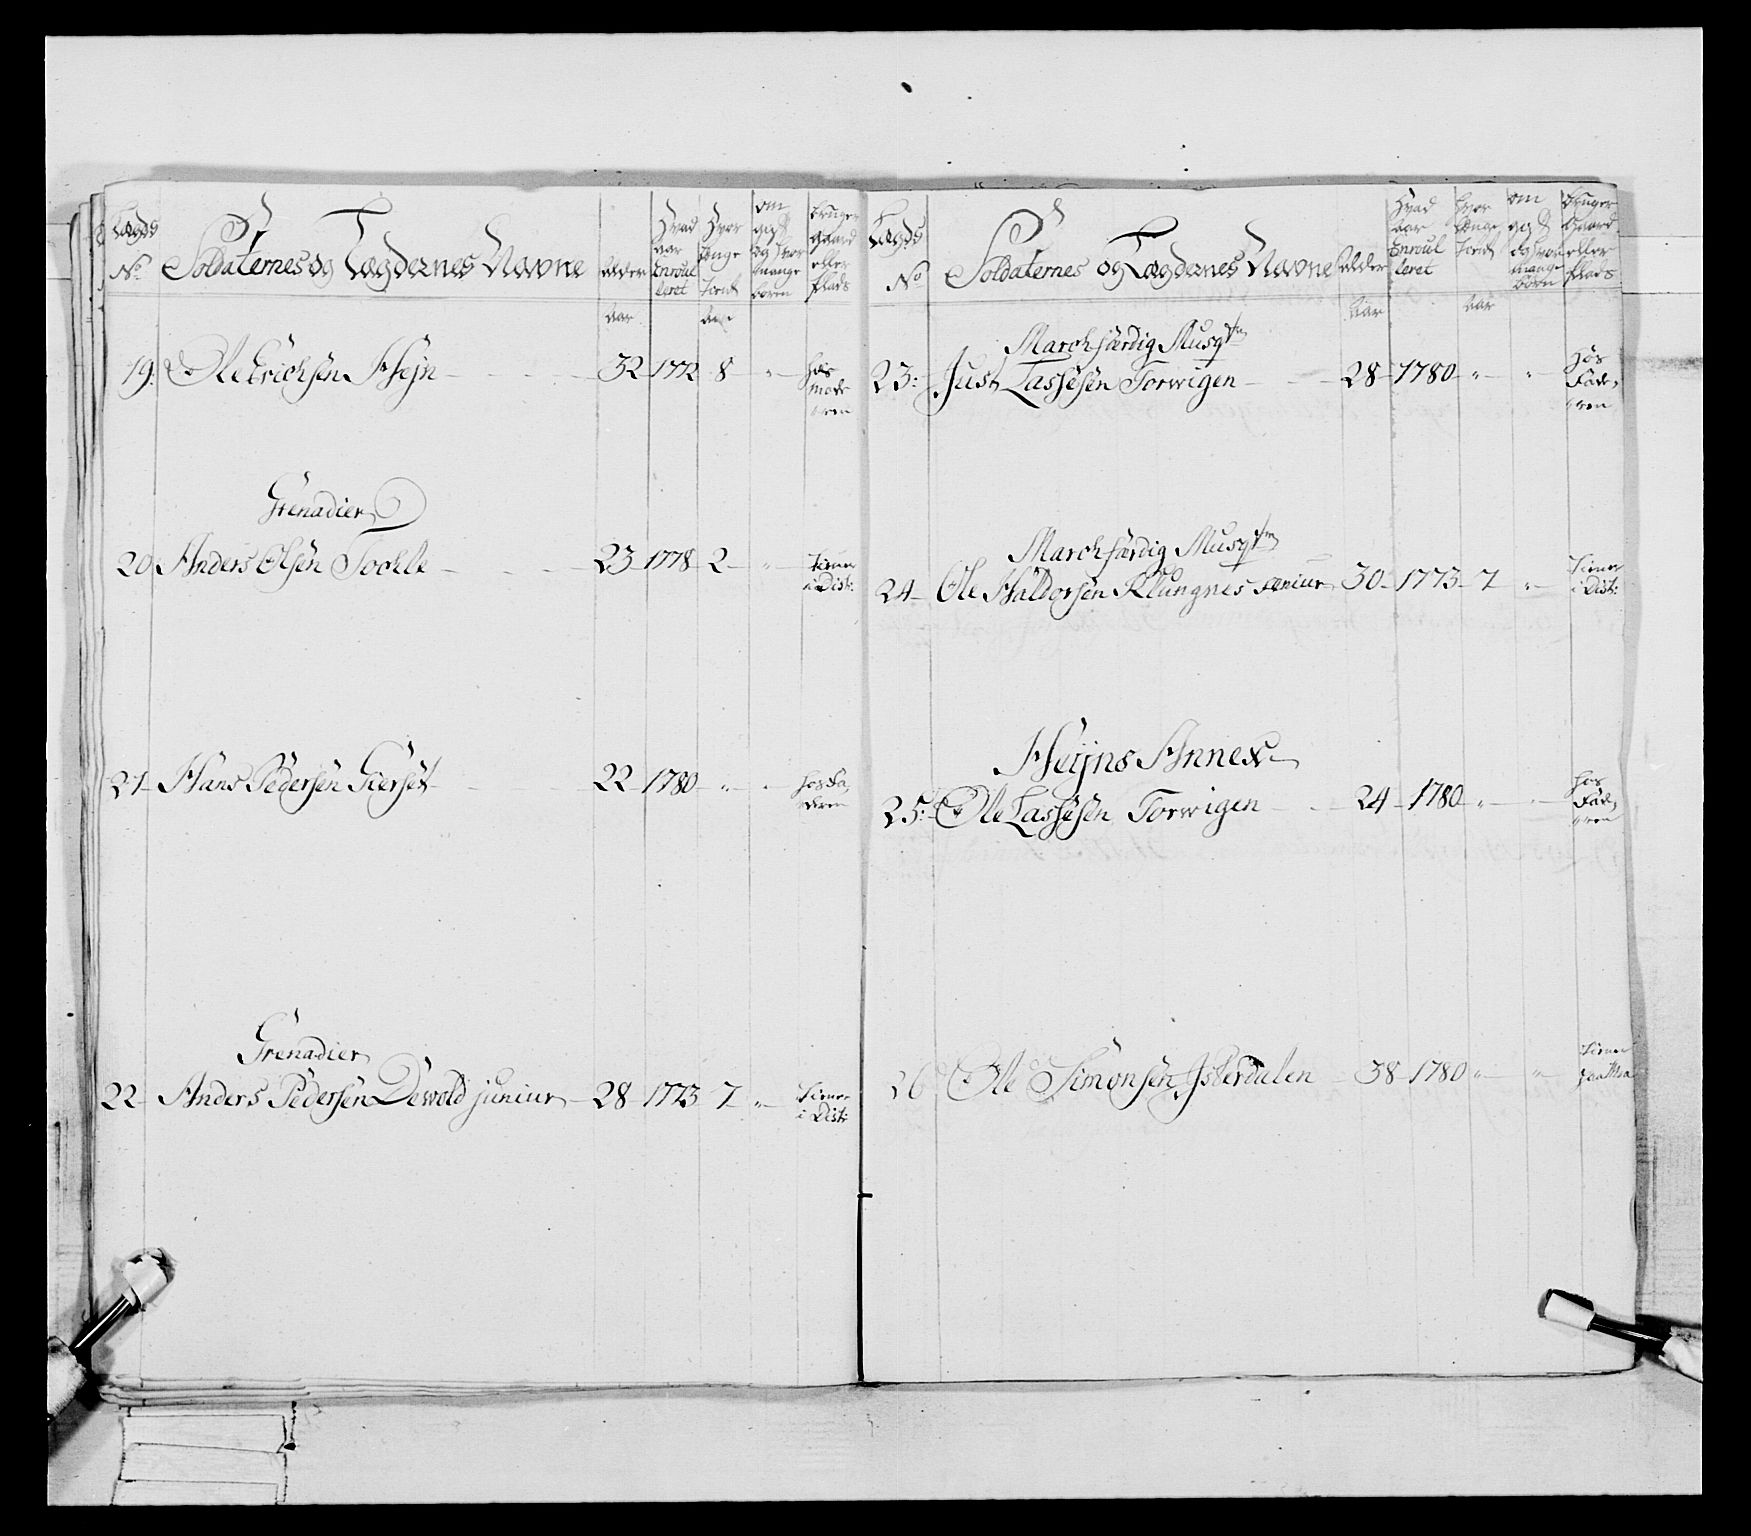 Lægds No Soldaternes og Lægdernes Navne Alder Hvad aar Enroulleret Hvor længe tient om gift og hvor mange børn bruger gaard eller plads
Aar Aar
19. Ole Erichsen Hejn 32 1772 8 " hos Moderen
Grenadier
20 Anders Olsen Tochle 23 1778 2 " tiener i Dist:
21 Hans Pedersen Gierset 22 1780 " " hos Faderen
Grenadier
22 Anders Pedersen Dewold juniur 28 1773 7 " tiener i Dist:
Lægds No Soldaternes og Lægdernes Navne Alder Hvad aar Enroulleret hvor længe tient om gift og hvor mange børn bruger Gaard eller plads
Aar Aar
Marchfærdig Musqtn
23: Just Lassesen Torwigen 28 1780 " " hos Faderen
Marchfærdig Musqtn
24 Ole Haldorsen Klungnes seniur 30 1773 7 " tiener i Dist:
Heijns Annex
25: Ole Lassesen Torwigen 24 1780 " " hos Faderen
26 Ole Simonsen Isterdalen 38 1780 " " tiener